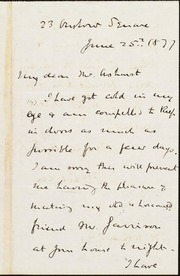 23 Onslow Square
June 25th 1877
My dear Mr. Ashurst
I have got cold in my
eye & am compelled to keep
in doors as much as
possible for a few days.
I am sorry this will prevent
me having the pleasure of
meeting my old & honoured
friend Mr. Garrison
at your house to night.
I have